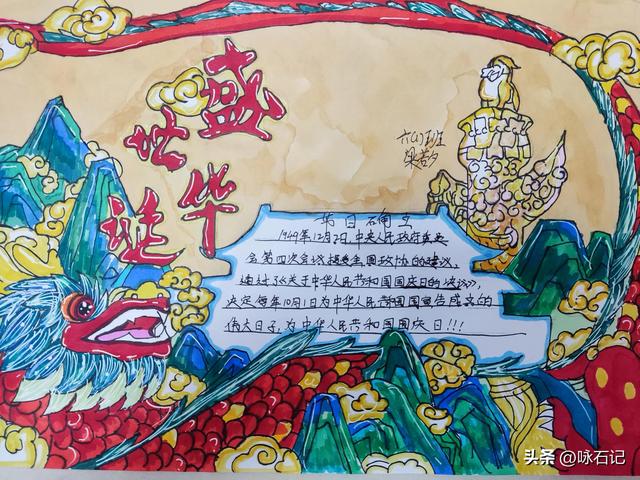 盛世
华诞
节日确立
1949年12月2日,中央人民政府委员
会第四次会议接受全国政协的建议,
通过了《关于中华人民共和国国庆日的决议》,
决定每年10月1日为中华人民共和国宣告成立的
伟大日子,为中华人民共和国国庆日!!!
头条 @咏石记